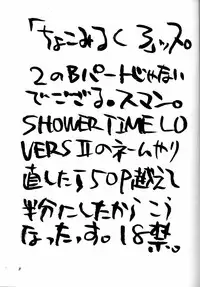 「ちょこみるくろップ。
2のBパートじゃない
でござる。スマン。
SHOWER TIME LO
VERS IIのネームやり
直したら50P越えて
半分にしたからこう
なったっす。18禁。